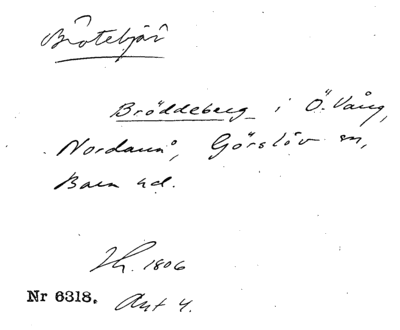 Brotebjär
Bröddeberg i Ö. Vång,
Nordanå, Görslöv sn,
Bara hd.
Lh. 1806
Nr 6318. Avt 4.